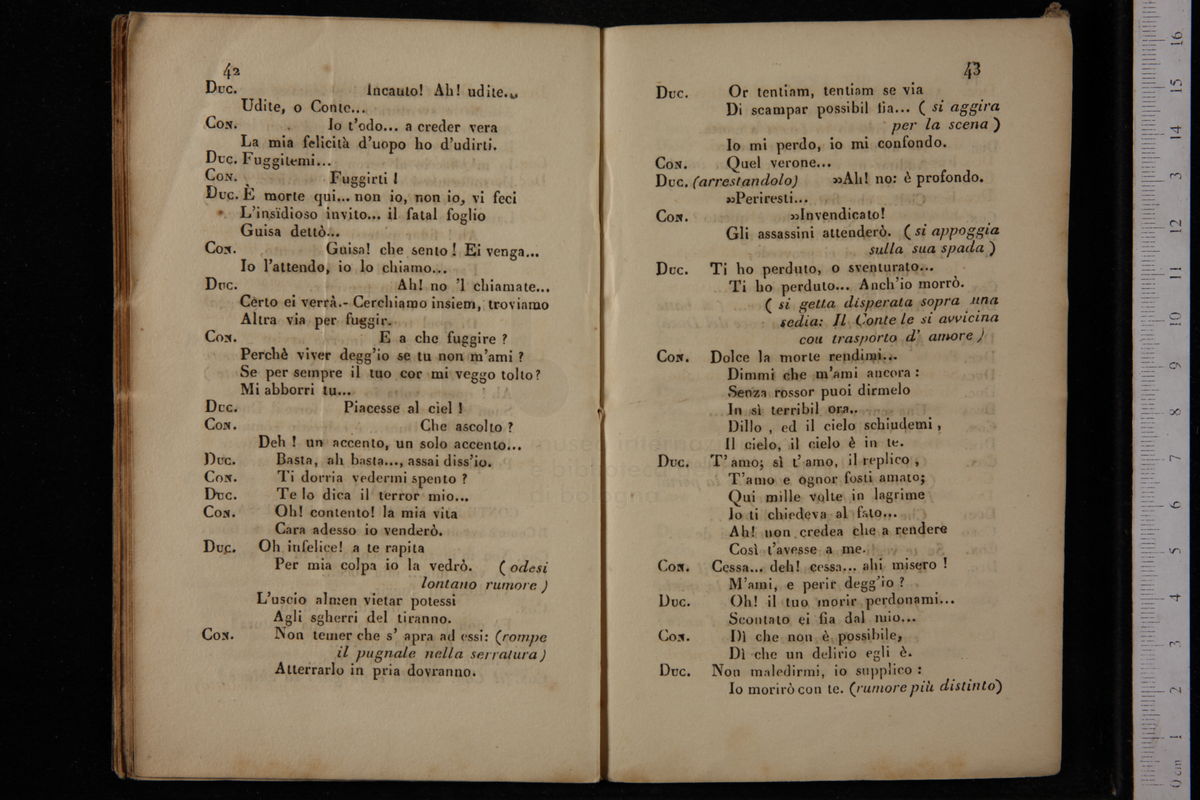 42
Duc. Incauto! Ah! udite...
Udite, o Conte...
Con. Io t'odo... a creder vera
La mia felicità d'uopo ho d'udirti.
Duc. Fuggitemi...
Con. Fuggirti!
Duc. È morte qui... non io, non io, vi feci
L'insidioso invito... il fatal foglio
Guisa dettò...
Con. Guisa! che sento! Ei venga...
Io l'attendo, io lo chiamo...
Duc. Ah! no 'l chiamate...
Certo ei verrà.- Cerchiamo insiem, troviamo
Altra via per fuggir.
Con. E a che fuggire?
Perchè viver degg'io se tu non m'ami?
Se per sempre il tuo cor mi veggo tolto?
Mi abborri tu...
Duc. Piacesse al ciel!
Con. Che ascolto?
Deh! un accento, un solo accento...
Duc. Basta, ah basta..., assai diss'io.
Con. Ti dorria vedermi spento?
Duc. Te lo dica il terror mio...
Con. Oh! contento! la mia vita
Cara adesso io venderò.
Duc. Oh infelice! a te rapita
Per mia colpa io la vedrò. (odesi
lontano rumore)
L'uscio almen vietar potessi
Agli sgherri del tiranno.
Con. Non temer che s' apra ad essi: (rompe
il pugnale nella serratura)
Atterrarlo in pria dovranno.
43
Duc. Or tentiam, tentiam se via
Di scampar possibil fia... (si aggira
per la scena)
Io mi perdo, io mi confondo.
Con. Quel verone...
Duc. (arrestandolo) »Ah! no: è profondo.
»Periresti...
Con. »Invendicato!
Gli assassini attenderò. (si appoggia
sulla sua spada)
Duc. Ti ho perduto, o sventurato...
Ti ho perduto... Anch'io morrò.
(si getta disperata sopra una
sedia: Il Conte le si avvicina
con trasporto d' amore)
Con. Dolce la morte rendimi...
Dimmi che m'ami ancora:
Senza rossor puoi dirmelo
In sì terribil ora..
Dillo, ed il cielo schiudemi,
Il cielo, il cielo è in te.
Duc. T' amo; sì t' amo, il replico,
T'amo e ognor fosti amato;
Qui mille volte in lagrime
Io ti chiedeva al fato...
Ah! non credea che a rendere
Così t'avesse a me.
Con. Cessa... deh! cessa... ahi misero!
M'ami, e perir degg'io?
Duc. Oh! il tuo morir perdonami...
Scontato ei fia dal mio...
Con. Dì che non è possibile,
Dì che un delirio egli è.
Duc. Non maledirmi, io supplico:
Io morirò con te. (rumore più distinto)
museo internazionale
biblioteca
di bologna
0 cm 1 2 3 4 5 6 7 8 9 10 11 12 13 14 15 16